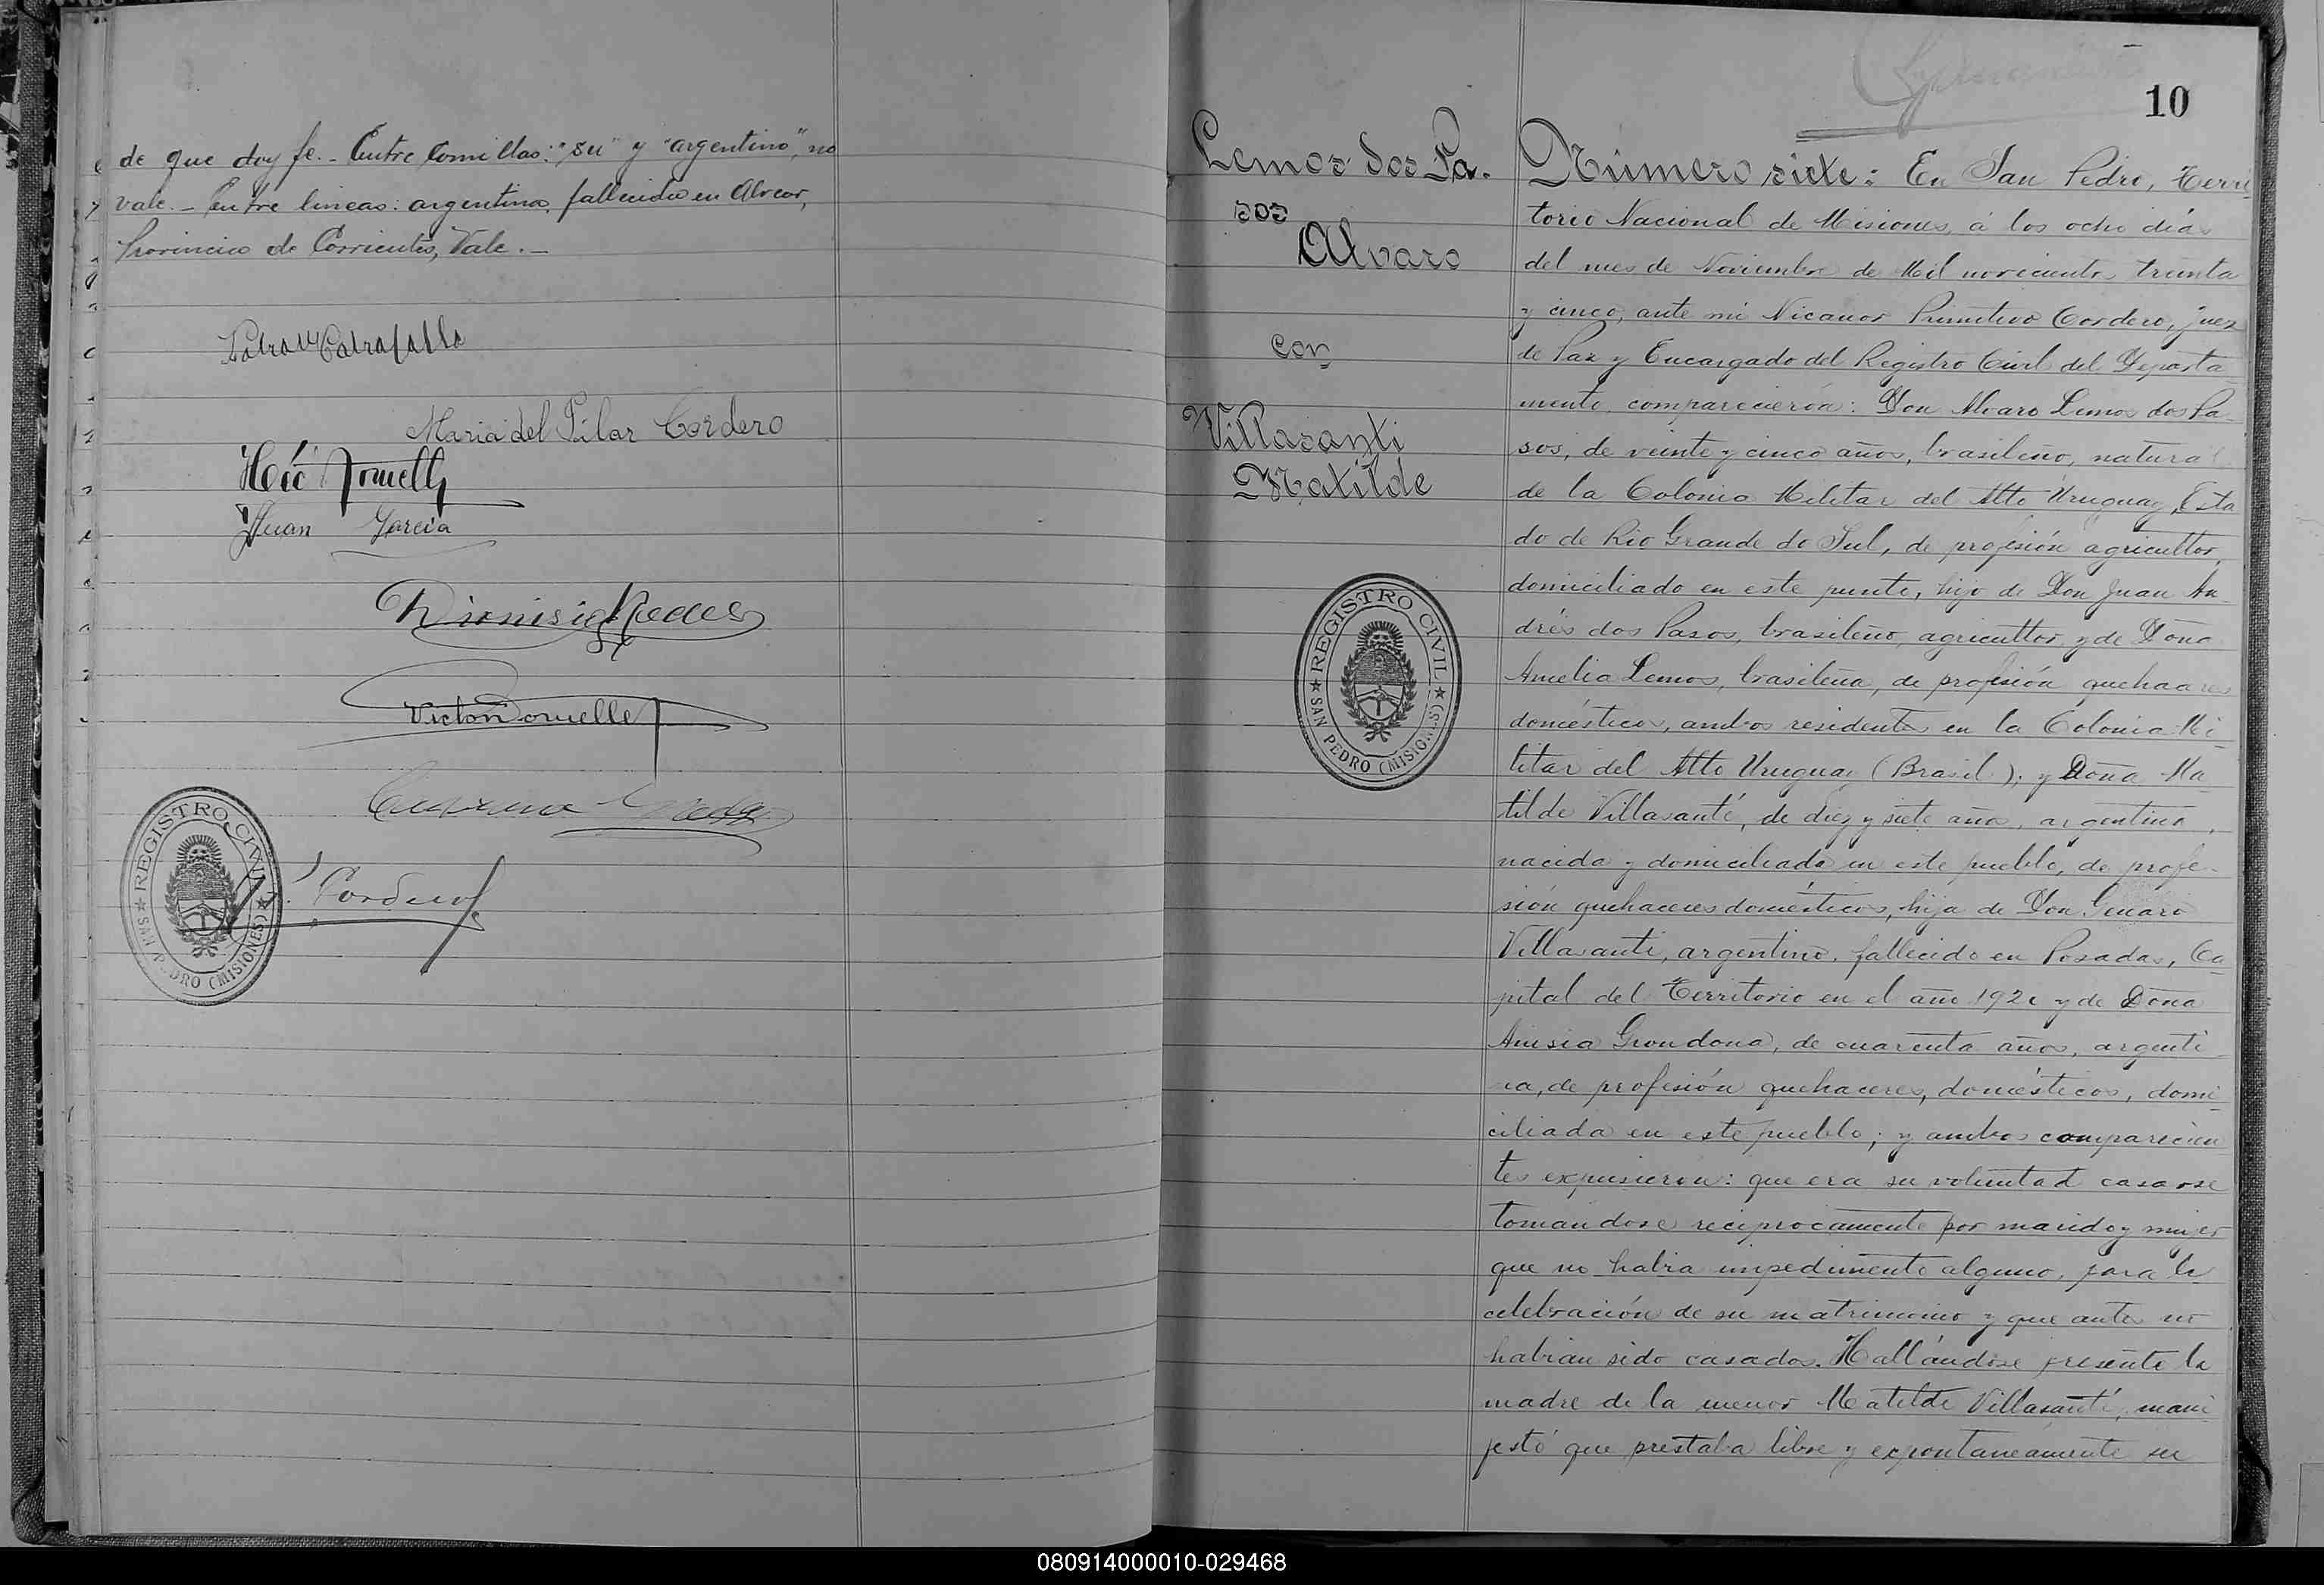 de que doy fe.- Entre comillas: "su" y "argentino", no
vale.- Entre lineas: argentino, fallecido en Alvear,
Provincia de Corrientes, Vale.-
Maria del Pilar Cordero
Juan Garcia
Dionisio
Victor
Cordero
REGISTRO CIVIL
SAN PEDRO (MISIONES)
10
Lemos dos Pa-
sos
Alvaro
con
Villasanti
Matilde
REGISTRO CIVIL
SAN PEDRO (MISIONES)
Número siete: En San Pedro, Terri-
torio Nacional de Misiones, á los ocho dias
del mes de Noviembre de Mil novecientos treinta
y cinco, ante mi Nicanor Primitivo Cordero, juez
de Paz y Encargado del Registro Civil del Departa-
mento, comparecieron: Don Alvaro Lemos dos Pa-
sos, de veinte y cinco años, brasileño, natural
de la Colonia Militar del Alto Uruguay, Esta-
do de Rio Grande do Sul, de profesión agricultor,
domiciliado en este punto, hijo de Don Juan An-
drés dos Pasos, brasileño, agricultor, y de Doña
Amelia Lemos, brasileña, de profesión quehaceres
domésticos, ambos residentes en la Colonia Mi-
litar del Alto Uruguay (Brasil); y Doña Ma-
tilde Villasanti, de diez y siete años, argentina,
nacida y domiciliada en este pueblo, de profe-
sión quehaceres domésticos, hija de Don Genaro
Villasanti, argentino, fallecido en Posadas, Ca-
pital del Territorio en el año y de Doña
Anisia Grondona, de cuarenta años, argenti-
na, de profesión quehaceres domésticos, domi-
ciliada en este pueblo; y ambos comparecien-
tes expusieron: que era su voluntad casarse
tomandose reciprocamente por marido y mujer
que no habia impedimento alguno, para la
celebración de su matrimonio y que antes no
habian sido casados. Hallándose presente la
madre de la menor Matilde Villasanti, mani-
festó que prestaba libre y expontaneamente su
080914000010-029468